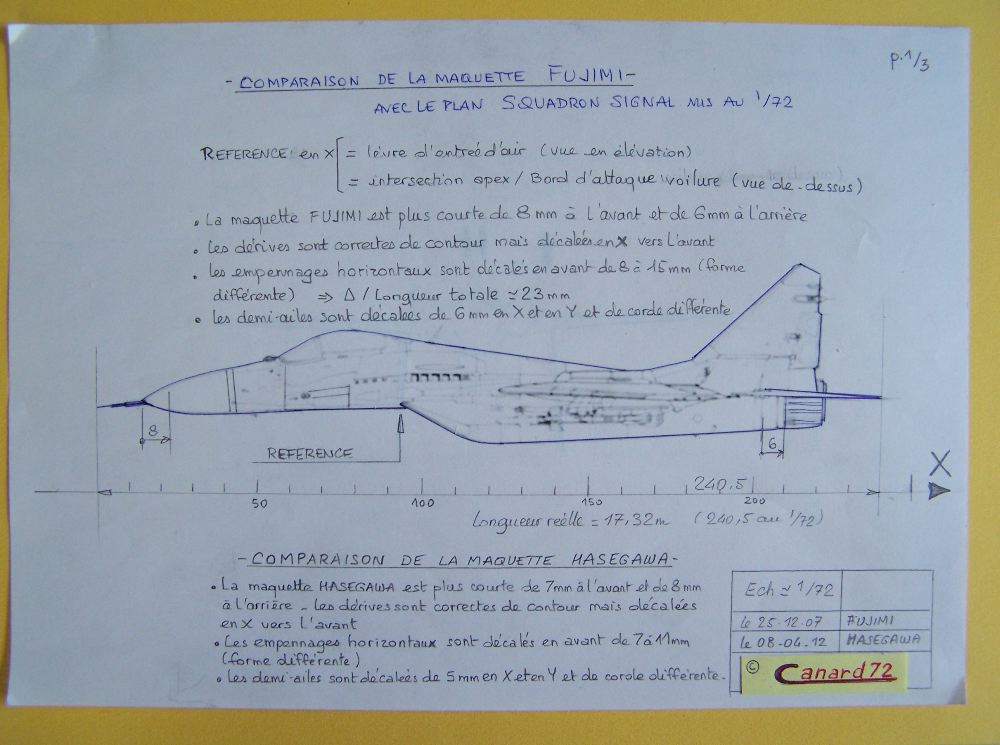 p.1/3
- COMPARAISON DE LA MAQUETTE FUJIMI -
AVEC LE PLAN SQUADRON SIGNAL MIS AU 1/72
REFERENCE: en X = lèvre d'entreé d'air (vue en élévation)
= intersection apex / Bord d'attaque voilure (vue de-dessus)
• La maquette FUJIMI est plus courte de 8mm à l'avant et de 6mm à l'arrière
• Les dérives sont correctes de contour mais décalées en X vers l'avant
• les empennages horizontaux sont décalés en avant de 8 à 15mm (forme
différente) ⇒ Δ / Longueur totale ≃ 23mm
• les demi-ailes sont décalées de 6mm en X et en Y et de corde différente
8
REFERENCE
6
X
50
100
150
200
240,5
Longueur réelle = 17,32m (240,5 au 1/72)
- COMPARAISON DE LA MAQUETTE HASEGAWA -
• La maquette HASEGAWA est plus courte de 7mm à l'avant et de 8mm
à l'arrière - les dérives sont correctes de contour mais décalées
en X vers l'avant
• Les empennages horizontaux sont décalés en avant de 7 à 11mm
(forme différente)
• les demi-ailes sont décalées de 5mm en X et en Y et de corde différente.
Ech ≃ 1/72
le 25.12.07 FUJIMI
le 08-04.12 HASEGAWA
© Canard72